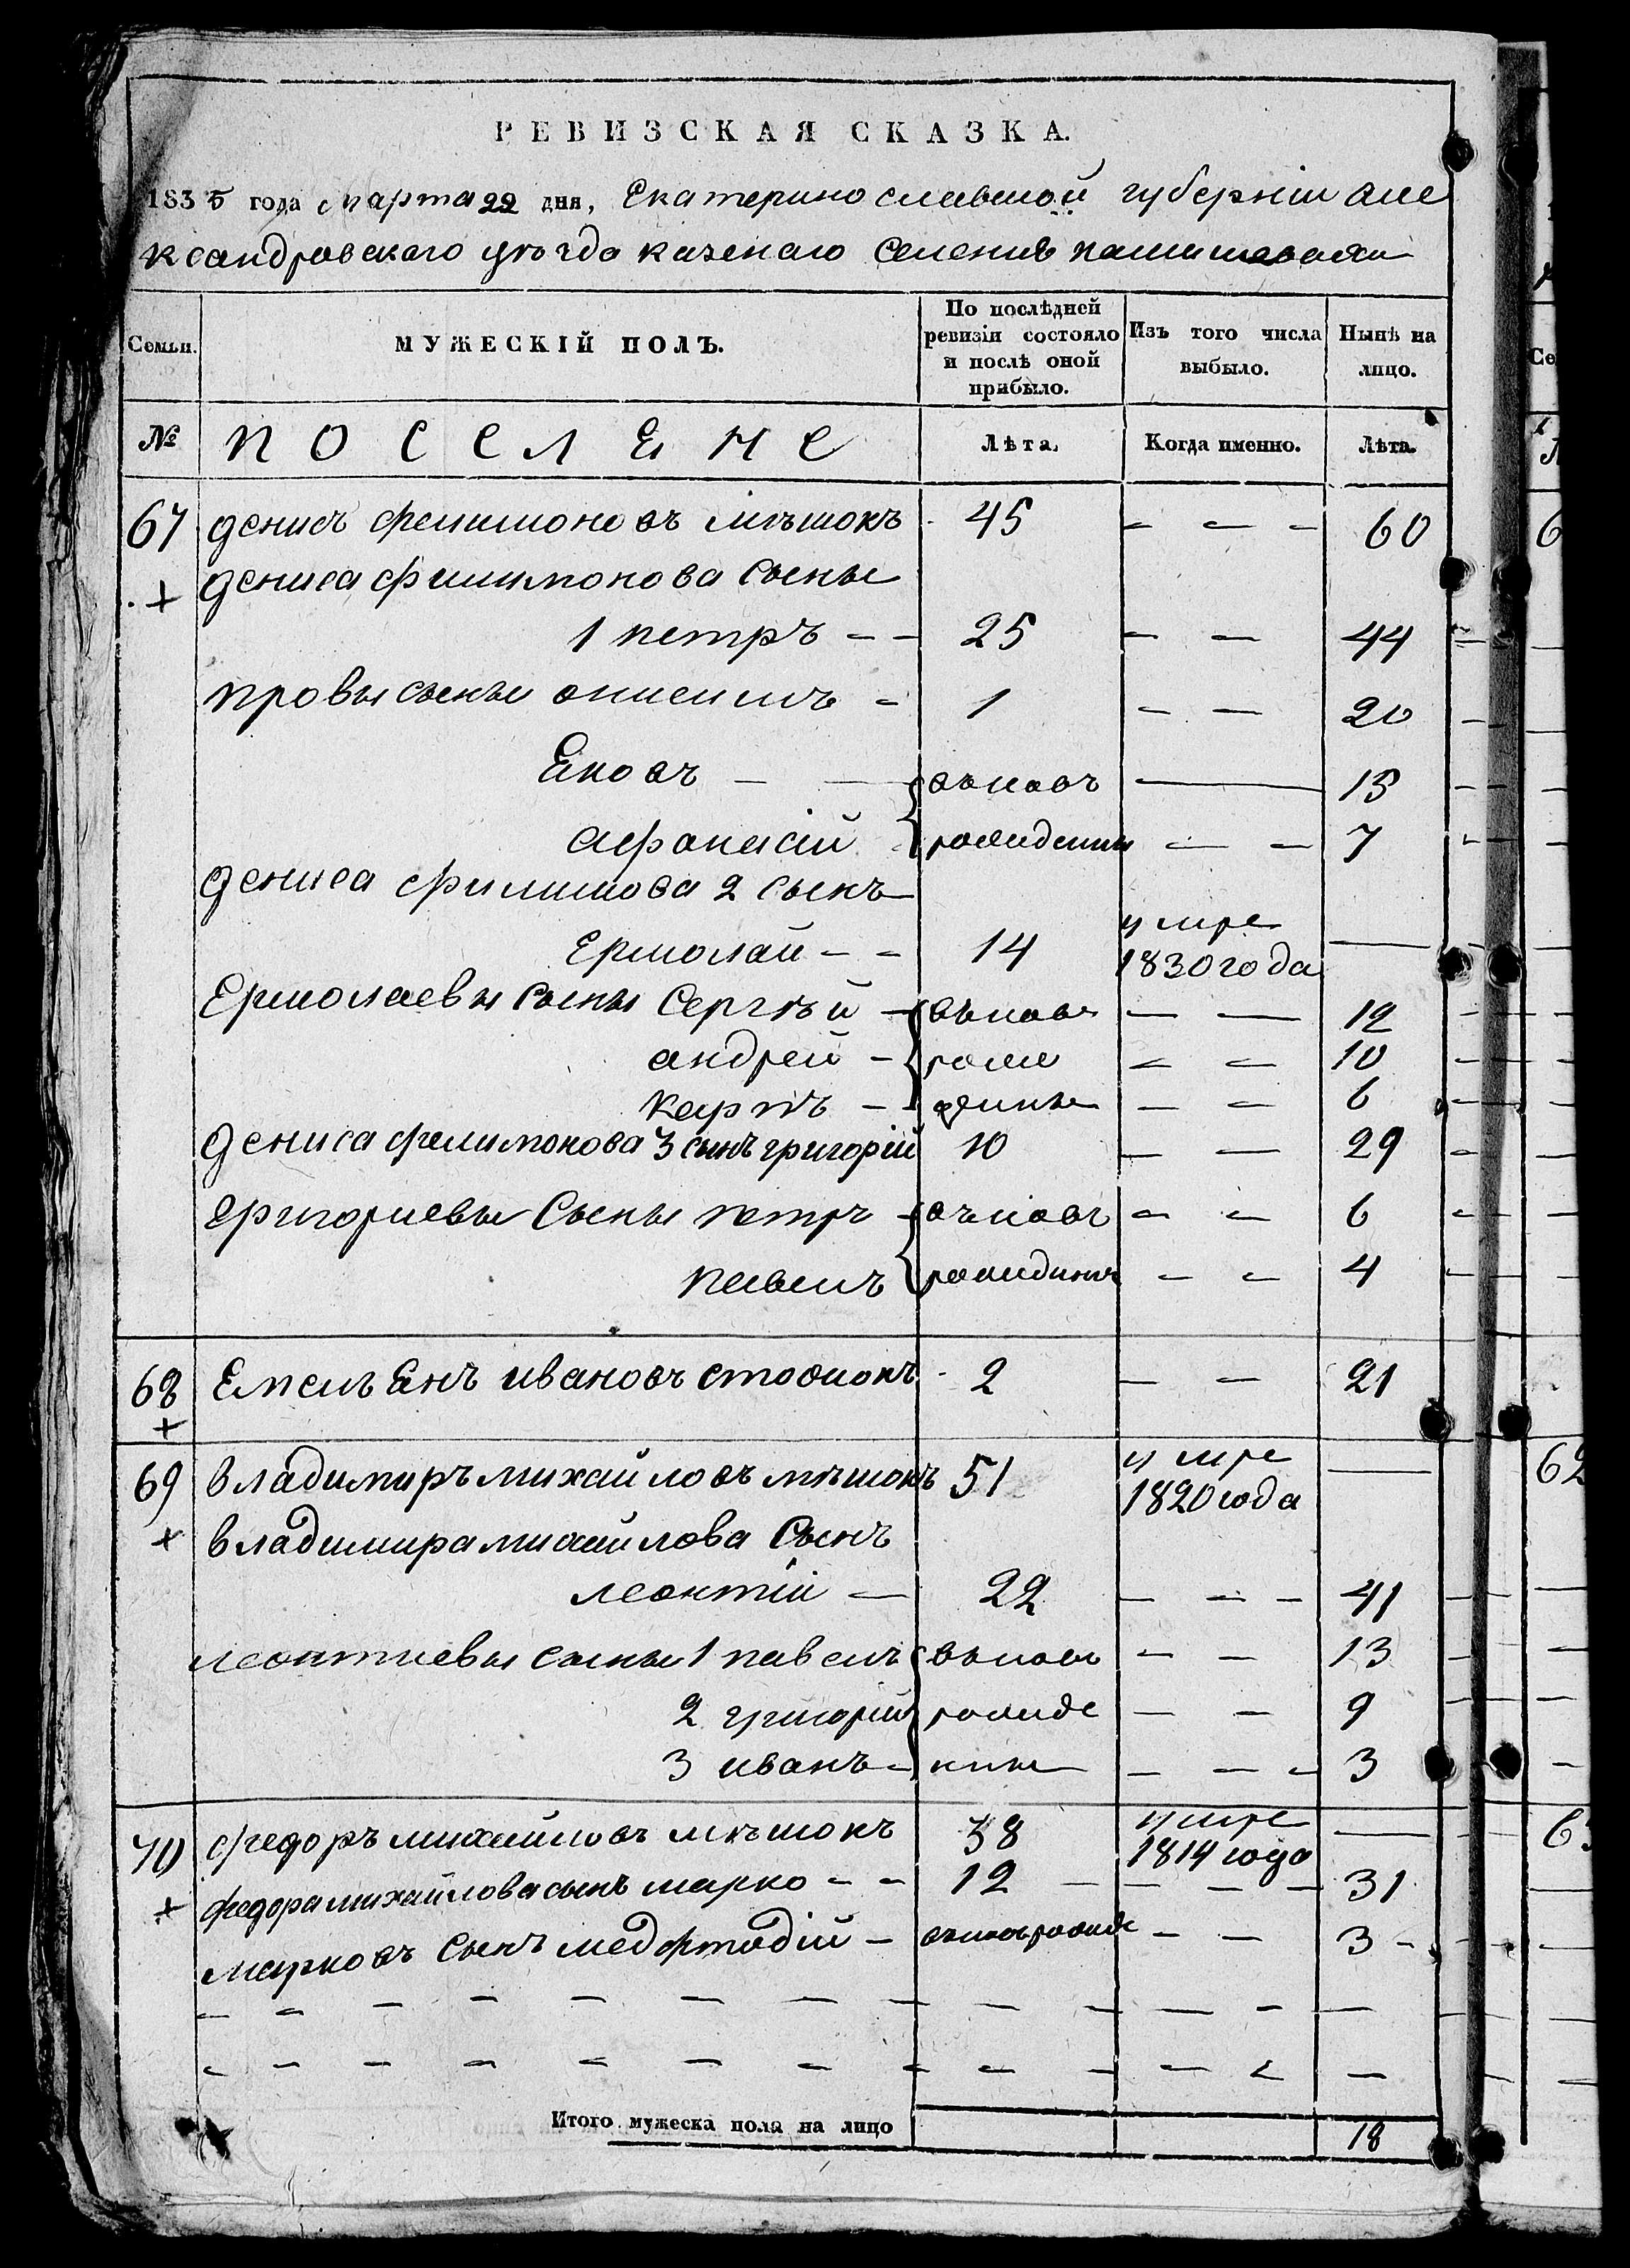 РЕВИЗСКАЯ СКАЗКА.
1835 года марта 22 дня, Екатеринославской губернiи але
ксандровскаго уѣзда казенаго селения
Семьи. МУЖЕСКІЙ ПОЛЪ. По послѣдней ревизіи состояло и послѣ оной прибыло. Изъ того числа выбыло. Нынѣ на лицо.
№ поселяне Лѣта. Когда именно. Лѣта.
67 денисъ филимоновъ мѣшокъ 45 - - - 60
+ дениса филимонова сыны
1 петръ - - 25 - - 44
сыны онисимъ - 1 - - 20
Яковъ - - въновь — 15
афанасiй рожденны - - 7
дениса филимова 2 сынъ
Ермолай - - 14 умре 1830 года —
Ермолаевы сыны Сергѣй - въновь - - 12
андрей - рож - - 10
карпъ - - дены - - 6
дениса филимонова 3 сынъ григорiй 10 - - 29
григориевы сыны петръ - въновь - - 6
павелъ рождины - - 4
68 Емельянъ ивановъ - 2 - - 21
+
69 владимиръ михайловъ мѣшокъ 51 умре 1820 года —
+ владимира михайлова сынъ
леонтiй — 22 - - - 41
леонтиевы сыны 1 павелъ вьновь - - 13
2 григорiй рожде - - 9
3 иванъ - ны - - - 3
70 федоръ михайловъ мѣшокъ 38 умре 1814 года —
+ федора михайлова сынъ марко - - 12 - - - - 31
марковъ сынъ медфтодiй - вьновь рожде - - 3 -
Итого мужеска пола на лицо 18